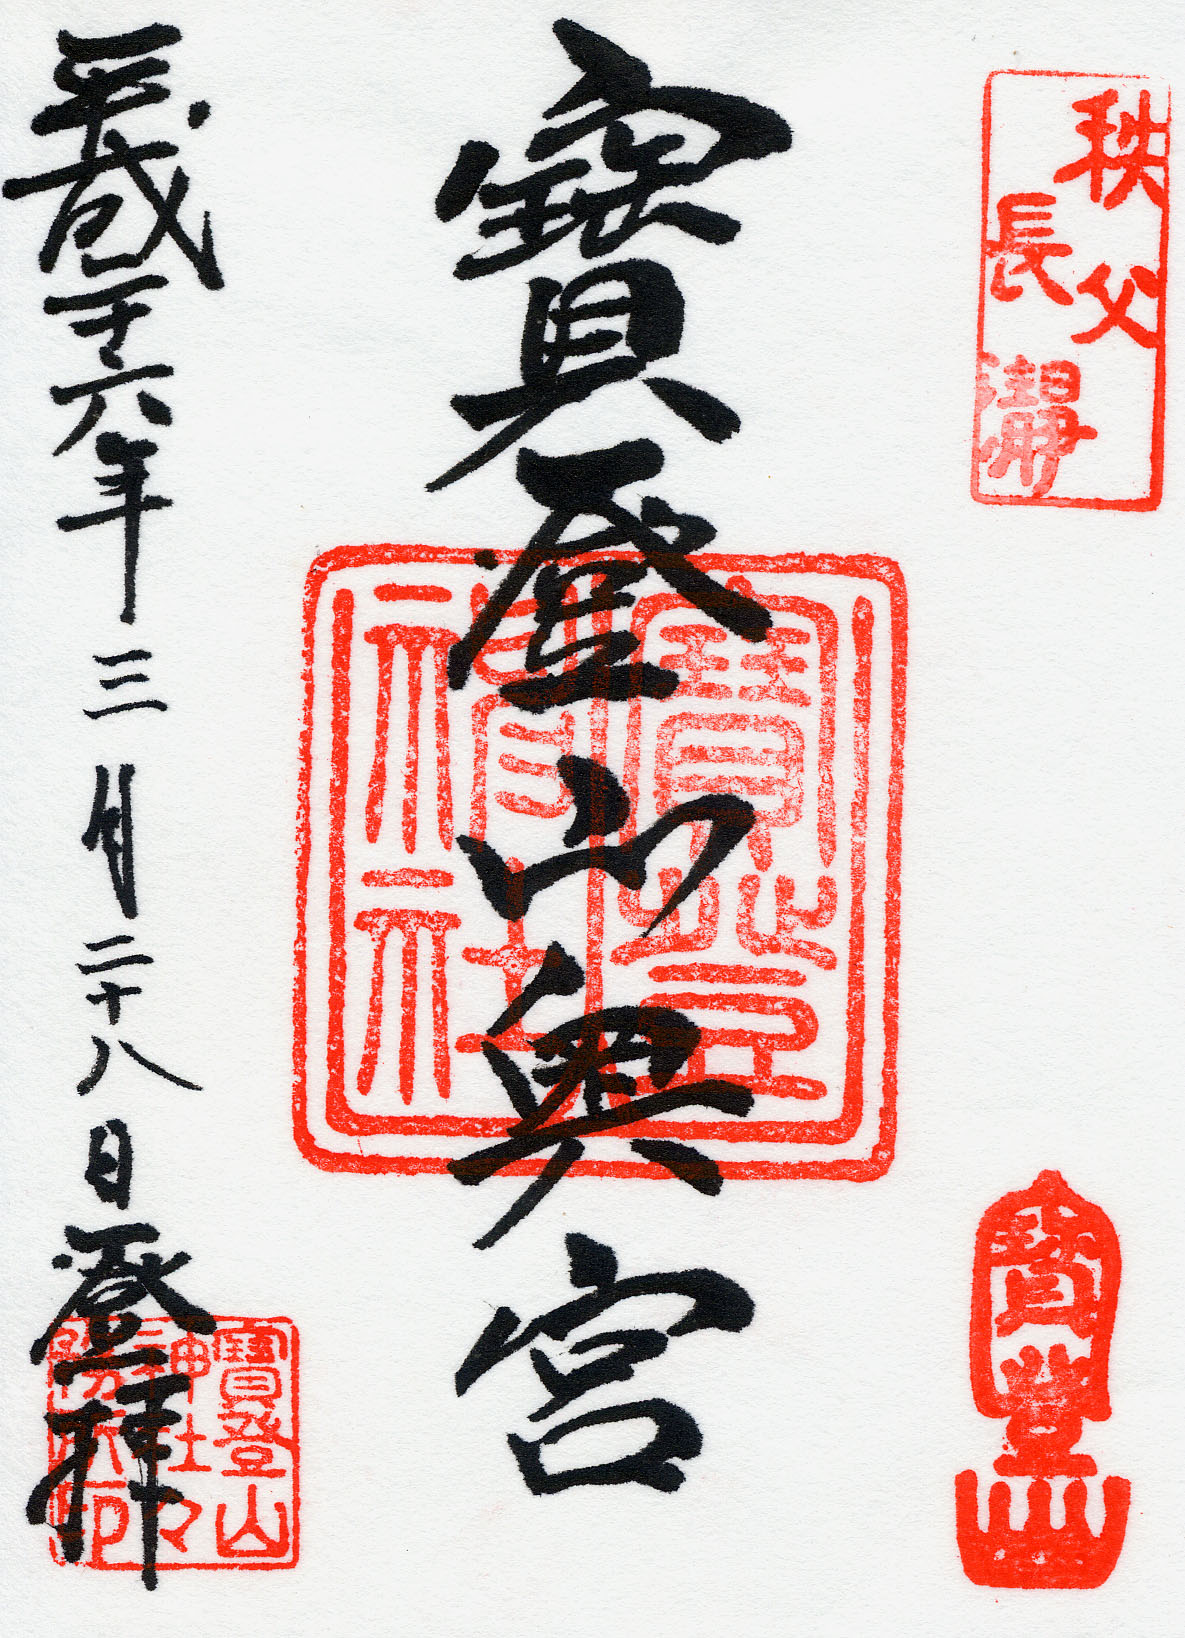 秩父
長瀞
寶登山
寶登山奥宮
寶登山神社
平成二十六年三月二十八日登拝
寶登山
神社々
務所印